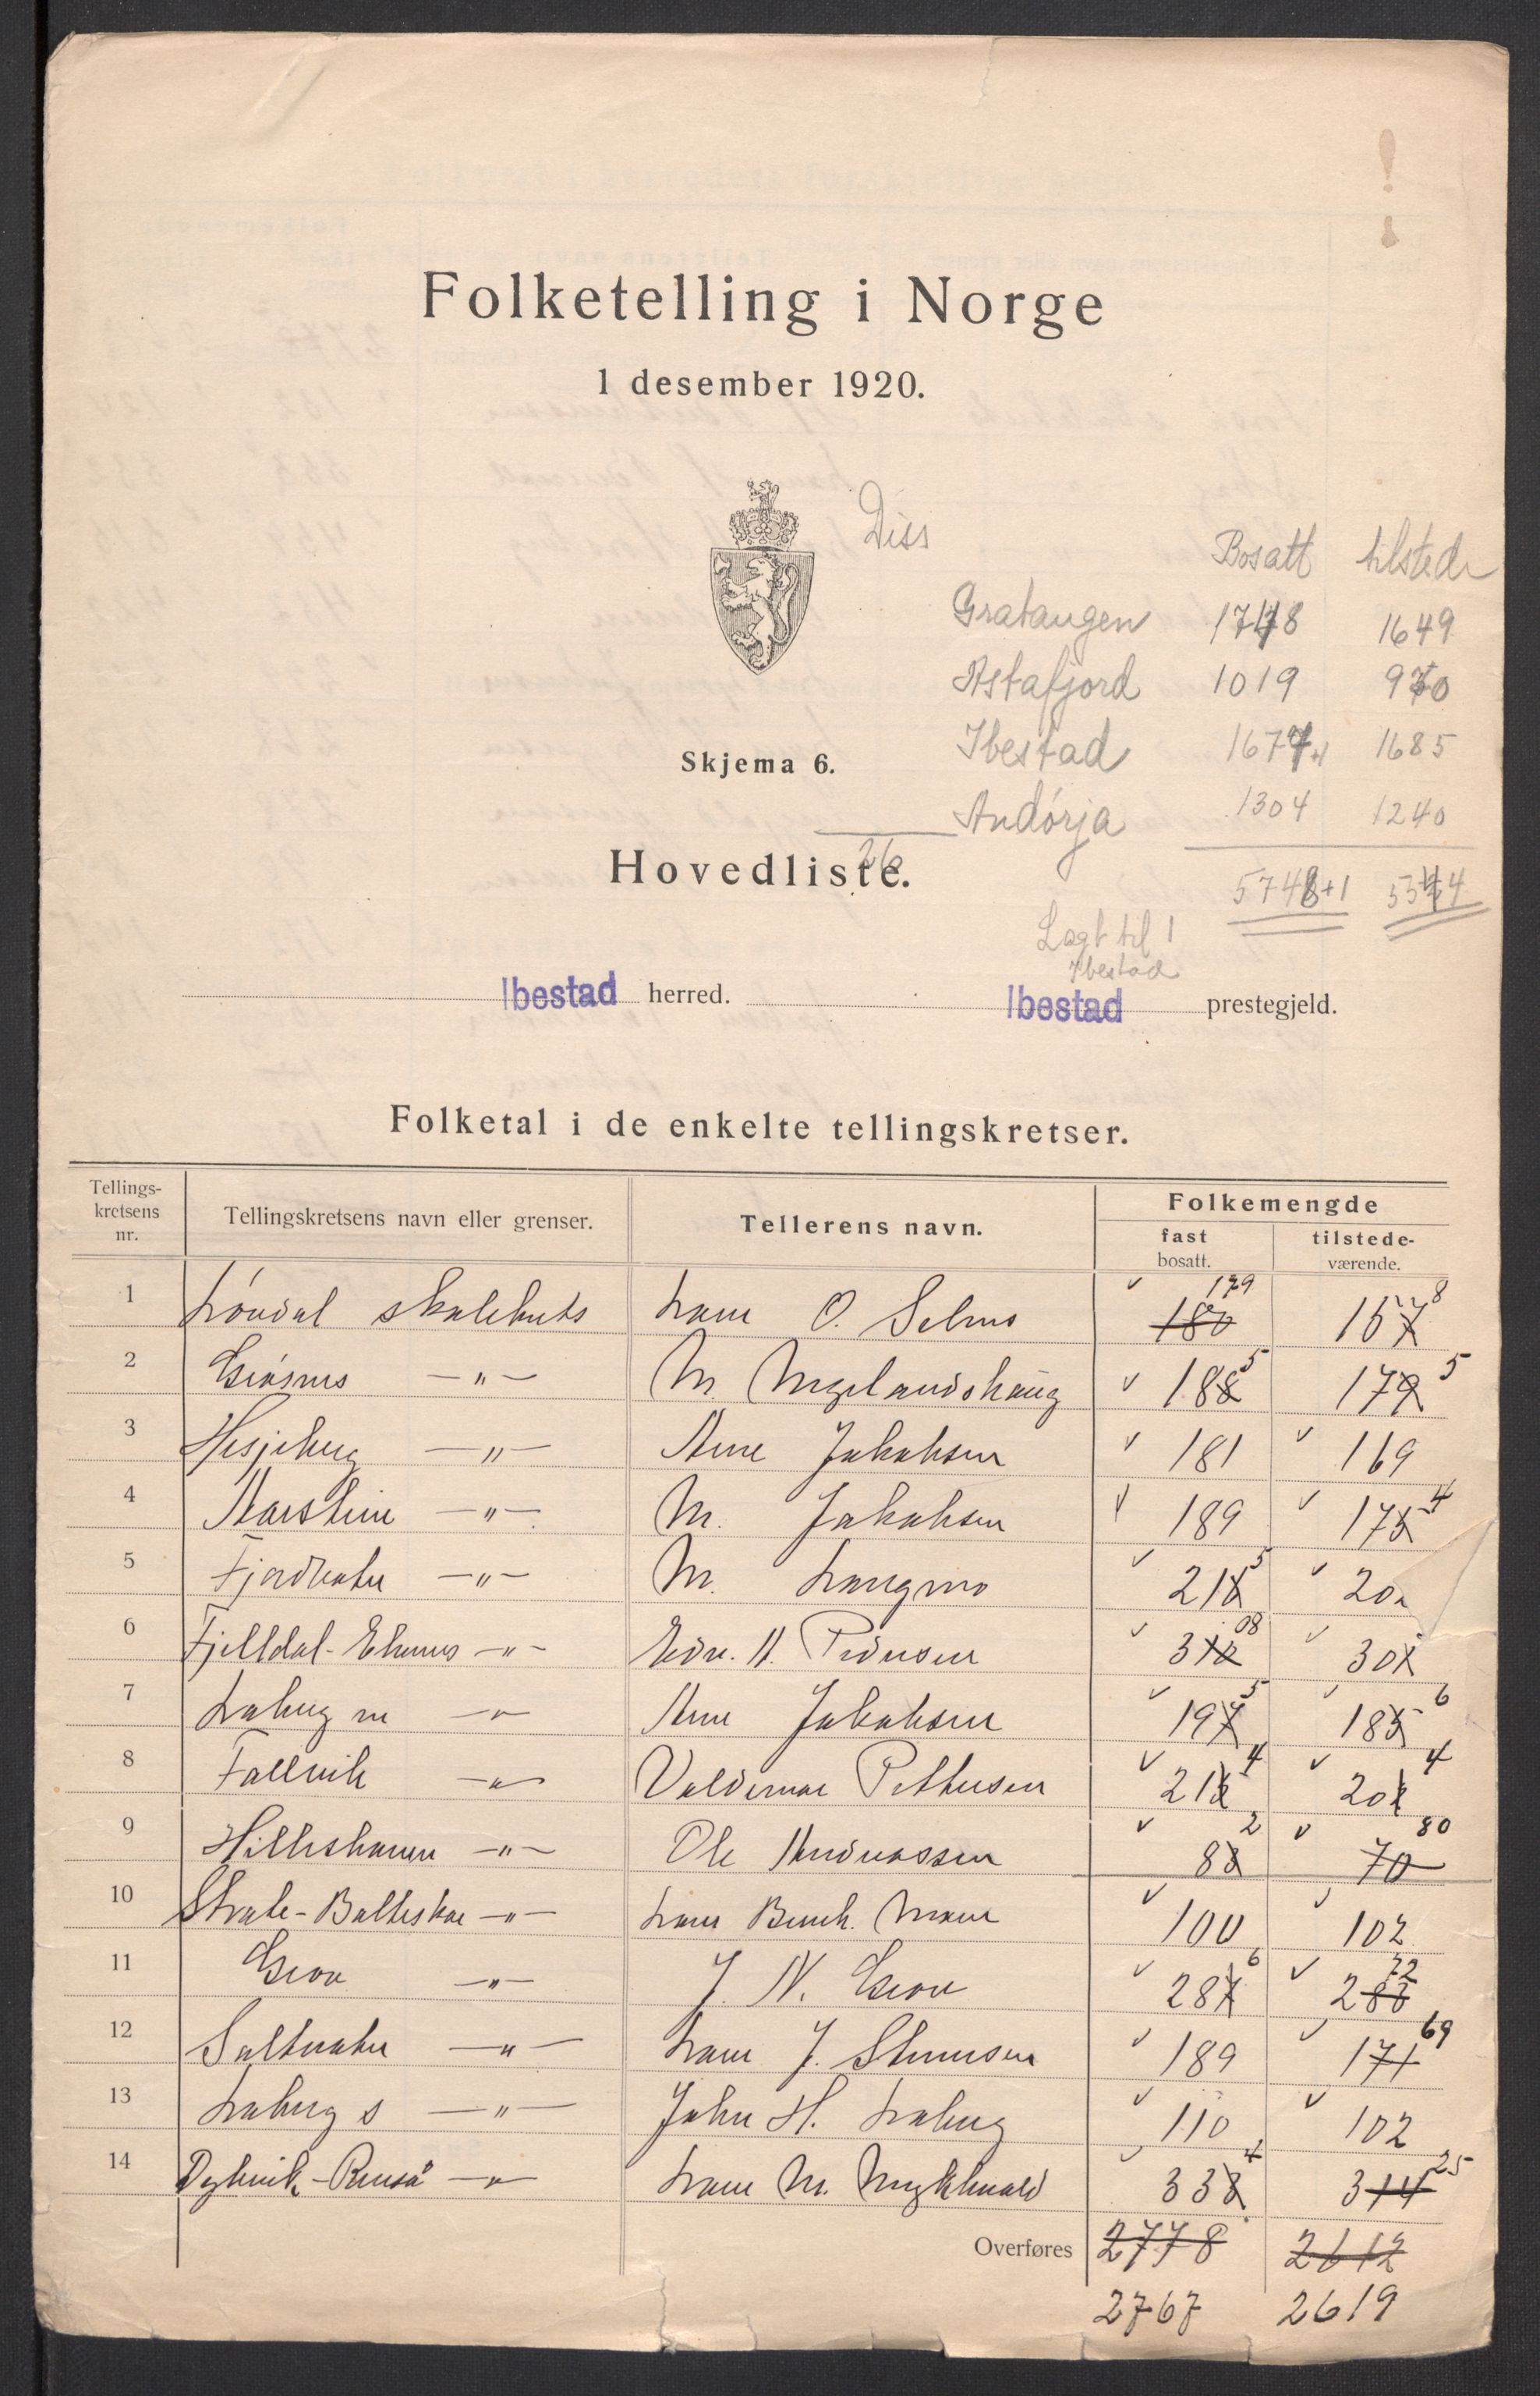 Folketelling i Norge
1 desember 1920.
Diss
Bosatt tilstede
Gratangen 1748 1649
Astafjord 1019 970
Ibestad 1677 1685
Skjema 6.
Andørja 1304 1240
Hovedliste.
26
5748+1 5544
Lagt til 1
Ibestad
Ibestad herred. Ibestad prestegjeld.
Folketal i de enkelte tellingskretser.
Tellings-
kretsens
nr.
Tellingskretsens navn eller grenser.
Tellerens navn.
Folkemengde
fast
bosatt.
tilstede-
værende.
1 Løvdal skolekrets Lars O. Selnes 180 179 157 8
2 — " — M. 188 5 179 5
3 Hesjeberg — " — Arne Jakobsen 181 169
4 Aarstein — " — M. Jakobsen 189 175 4
5 Fjordbotn — " — M. Langmo 216 5
6 Fjelldal - Elvenes — " — Edv. A. Pedersen 310 08 301
7 Laberg n — " — Arne Jakobsen 197 5 185 6
8 Fallvik — " — Valdemar Pettersen 215 4 201 4
9 Hilleshamn — " — Ole Andreassen 83 2 70 80
10 - Balteskar — " — Lars 100 102
11 Grov — " — J. N. Grov 287 6 280 72
12 Saltvatn — " — Lars J. Simonsen 189 171 69
13 Laberg s — " — John H. Laberg 110 102
14 Dyrvik - Renså — " — Lars M. Myklevold 338 4 314 25
Overføres 2778 2612
2767 2619